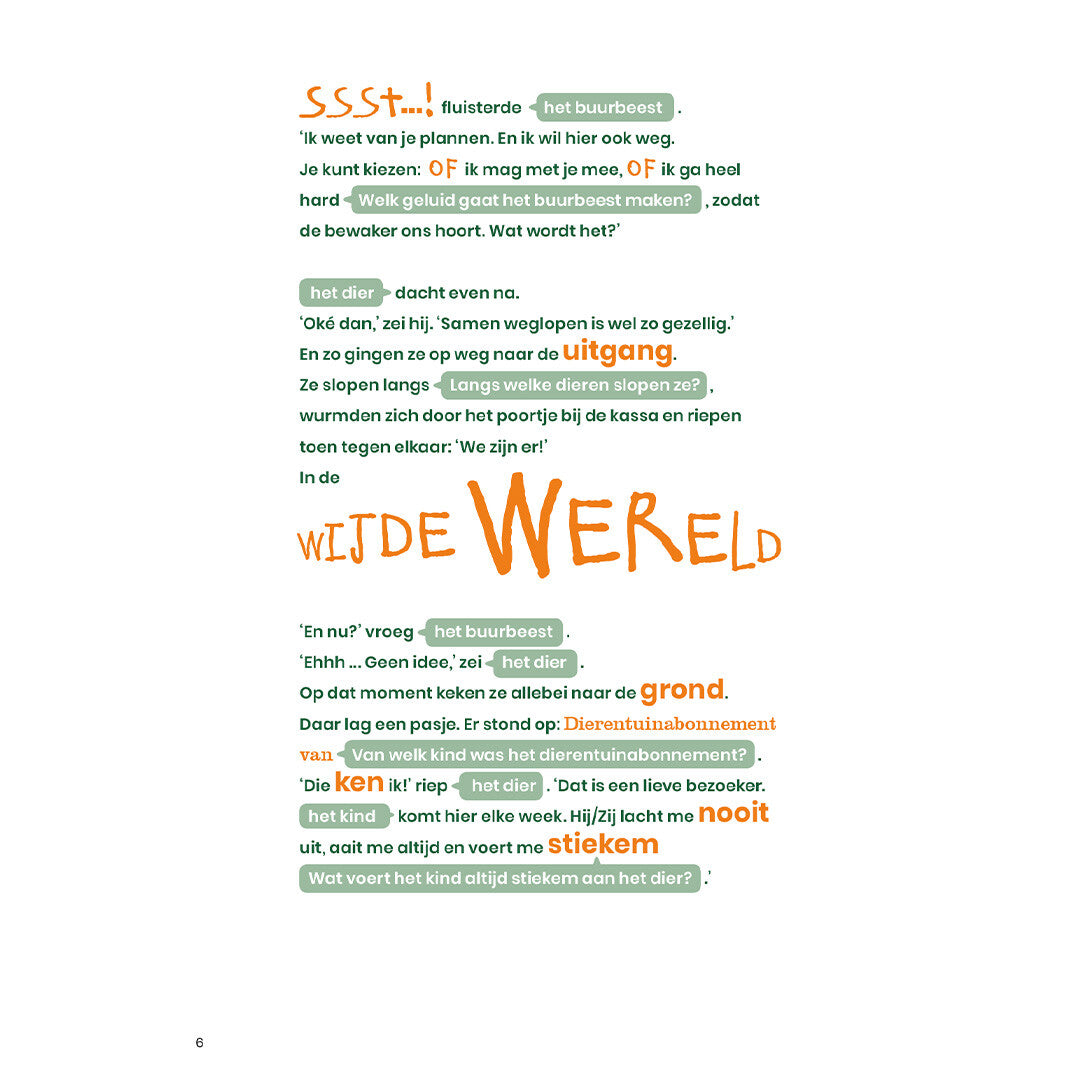 SSSt...! fluisterde het buurbeest .
‘Ik weet van je plannen. En ik wil hier ook weg.
Je kunt kiezen: OF ik mag met je mee, OF ik ga heel
hard Welk geluid gaat het buurbeest maken? , zodat
de bewaker ons hoort. Wat wordt het?’
het dier dacht even na.
‘Oké dan,’ zei hij. ‘Samen weglopen is wel zo gezellig.’
En zo gingen ze op weg naar de uitgang.
Ze slopen langs Langs welke dieren slopen ze? ,
wurmden zich door het poortje bij de kassa en riepen
toen tegen elkaar: ‘We zijn er!’
In de
WIJDE WERELD
‘En nu?’ vroeg het buurbeest .
‘Ehhh ... Geen idee,’ zei het dier .
Op dat moment keken ze allebei naar de grond.
Daar lag een pasje. Er stond op: Dierentuinabonnement
van Van welk kind was het dierentuinabonnement? .
‘Die ken ik!’ riep het dier . ‘Dat is een lieve bezoeker.
het kind komt hier elke week. Hij/Zij lacht me nooit
uit, aait me altijd en voert me stiekem
Wat voert het kind altijd stiekem aan het dier? .’
6